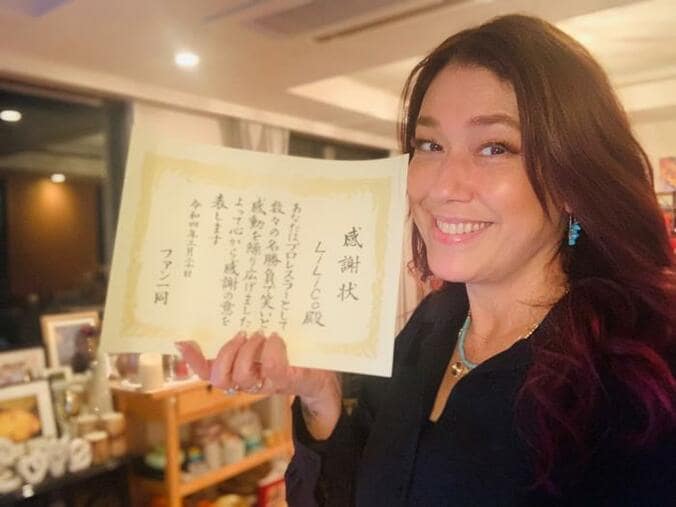 感謝状
LiLiCo殿
あなたはプロレスラーとして
数々の名勝負で笑いと
感動を繰り広げました
よって心から感謝の意を
表します
令和四年三月
ファン一同